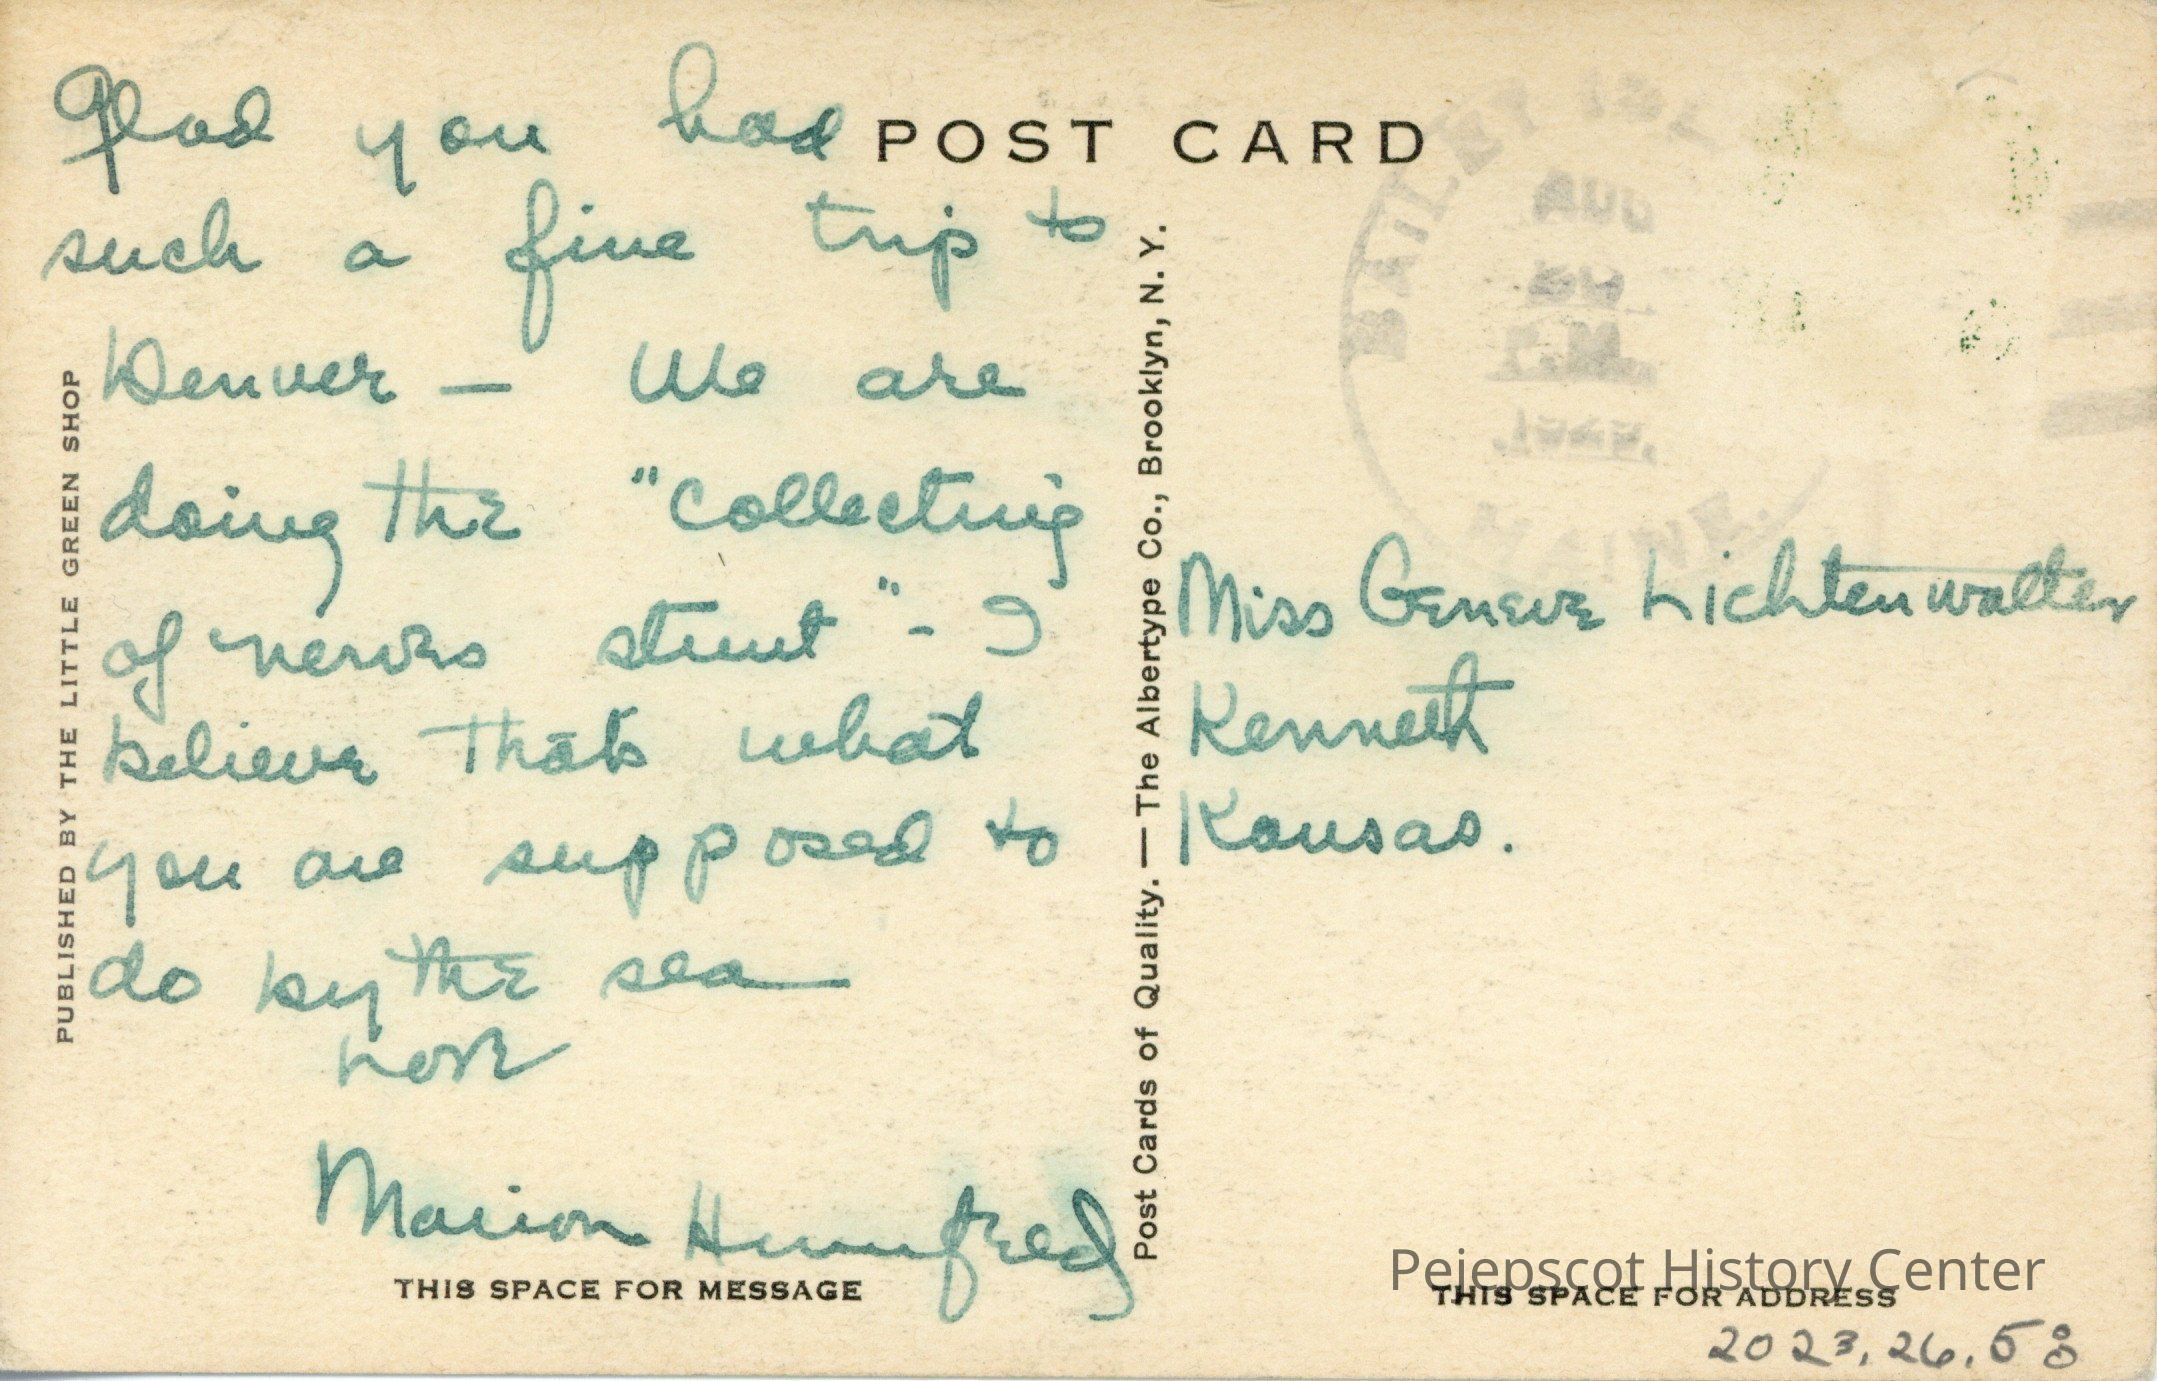 Glad you had
such a fine trip to
Denver — We are
doing the "collecting
of nerves stunt" - I
believe that's what
you are supposed to
do by the sea
Love
Marion Humfreed
POST CARD
PUBLISHED BY THE LITTLE GREEN SHOP
Post Cards of Quality. — The Albertype Co., Brooklyn, N. Y.
Miss Geneve Lichtenwalter
Kenneth
Kansas.
THIS SPACE FOR MESSAGE
THIS SPACE FOR ADDRESS
Pejepscot History Center
2023.26.58